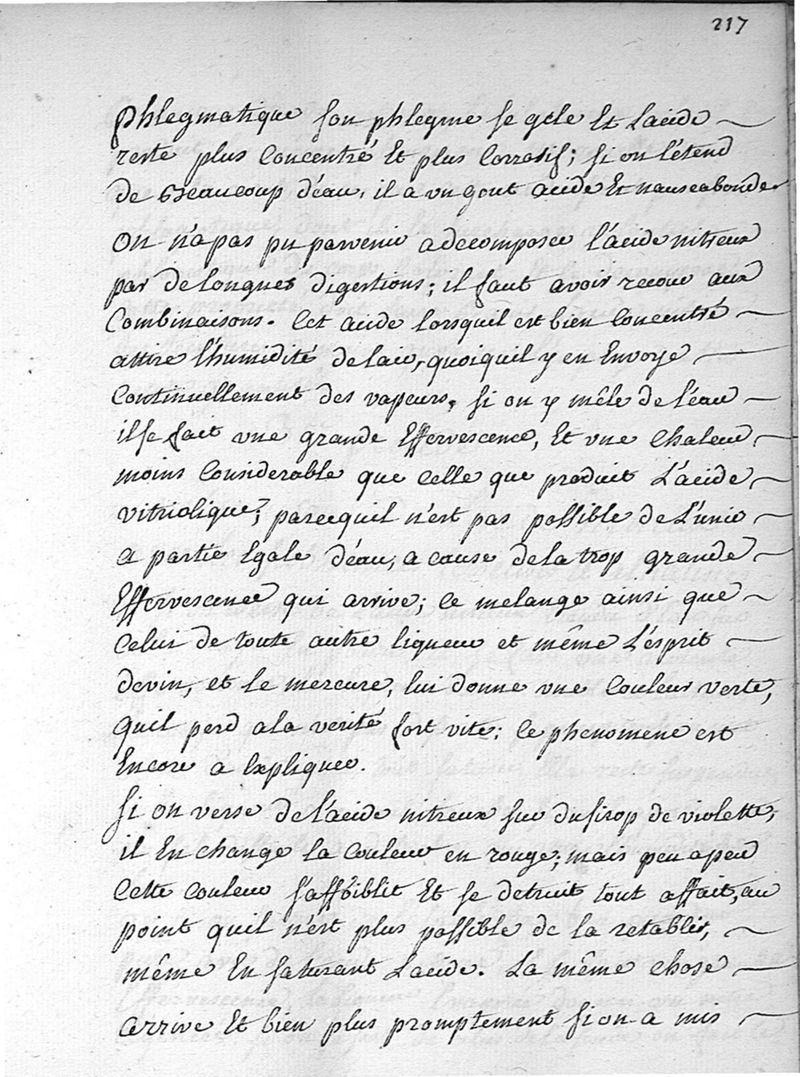 217
phlegmatique son phlegme se gele Et L'acide
reste plus Concentré Et plus Corrosif; si on l'étend
de Beaucoup d'éau, il a vn gout acide Et nauseabonde
On n'a pas pu parvenir a decomposer l'ácide nitreux
par de longues digestions; il faut avoir recour aux
Combinaisons. Cet acide lorsquil est bien Concentré
attire l'húmidité de lair, quoiquil y en Envoye
Continuellement des vapeurs, si on y mêle de l'éau
il se fait vne grande Effervescence, Et vne Chaleur
moins Considerable que Celle que produit L'ácide
vitriolique, parcequil n'est pas possible de L'unir
a partie Egale d'éau, a cause de la trop grande
Effervescence qui arrive; Ce melange ainsi que
Celui de toute autre liqueur et même L'ésprit
devin, et le mercure, lui donne vne Couleur verte,
quil perd ala verité fort vite; Ce phenomene est
Encore a Expliquer.
Si on verse de l'ácide nitreux sur du sirop de violette,
il En change la Couleur en rouge; mais peu apeu
Cette Couleur s'affoiblit Et se detruit tout affait, au
point quil n'est plus possible de la retablir,
même En saturant L'acide. La même chose
arrive Et bien plus promptement si on a mis